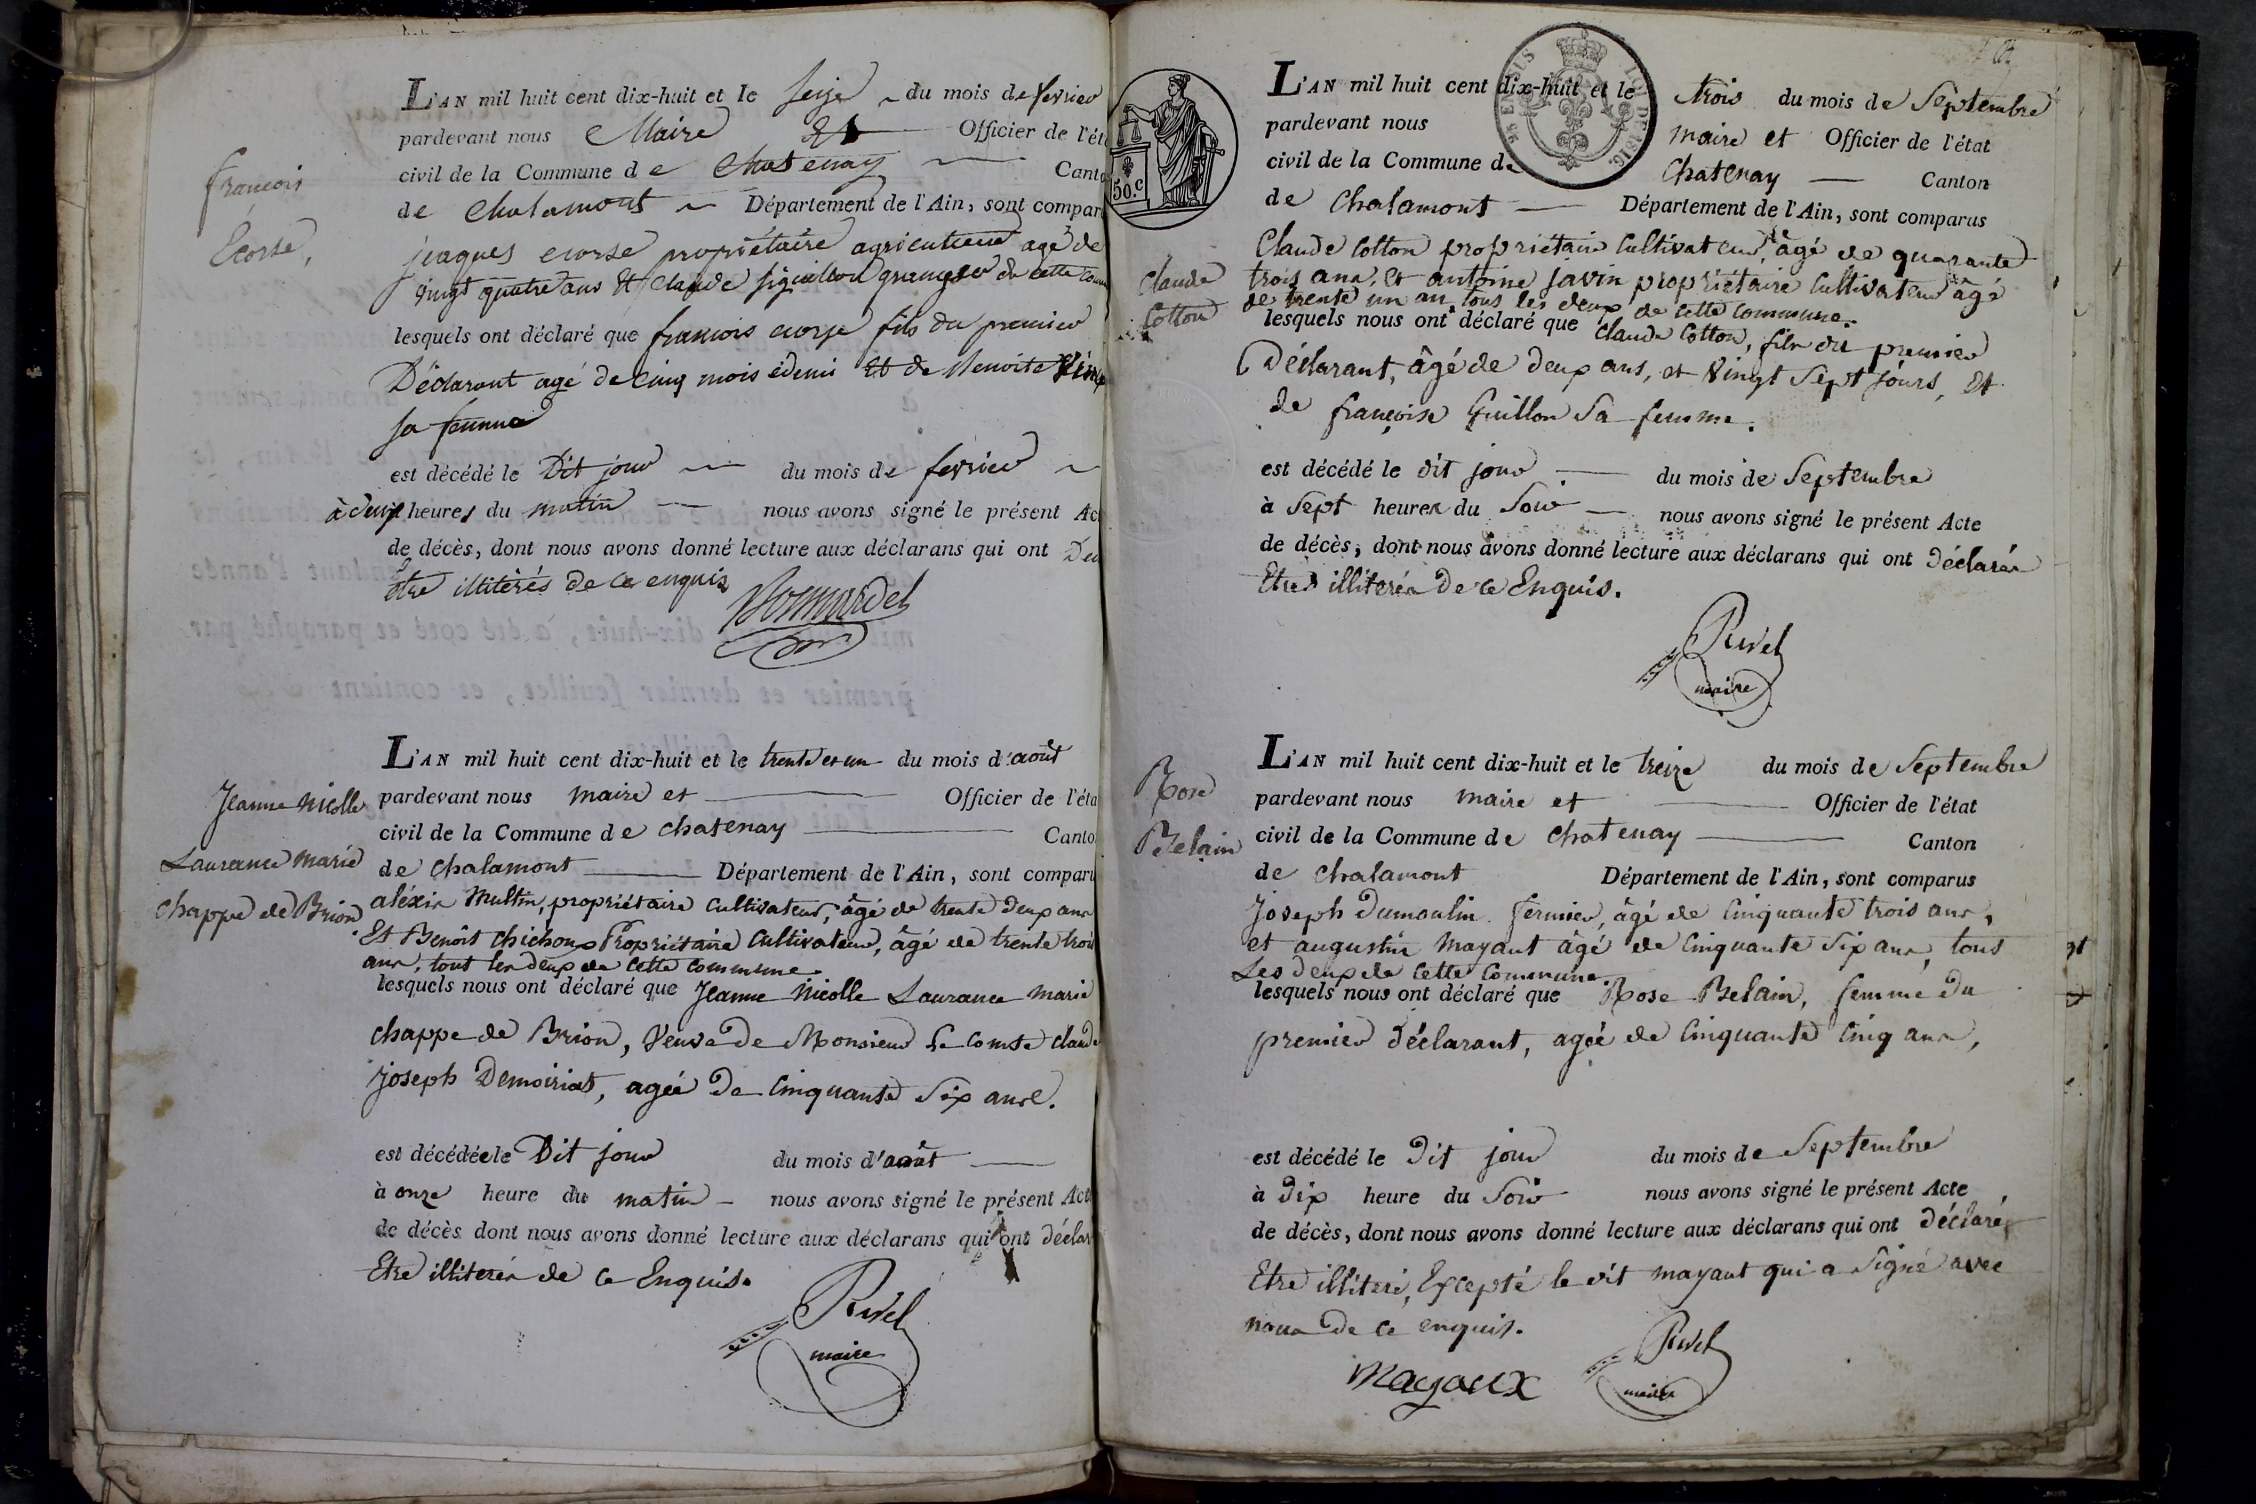 François
Ecorse,
L'AN mil huit cent dix-huit et le seize du mois de fevrier
pardevant nous Maire et Officier de l'ét
civil de la Commune de Chatenay Canto
de Chalamont Département de l'Ain, sont compar
jacques ecorse propriétaire agriculteur agé de
vingt quatre ans Et Claude granger de cette comm
lesquels ont déclaré que francois ecorse fils du premier
Déclarant agé de cinq mois édemi Et de Benoite
sa femme
est décédé le Dit jour du mois de fevrier
à deux heures du matin nous avons signé le présent Ac
de décès, dont nous avons donné lecture aux déclarans qui ont Dec
être illitérés de ce enquis
Bonnardel
Jeanne Nicolle
Laurance Marie
Chappe de Brion.
L'AN mil huit cent dix-huit et le trente et un du mois d'août
pardevant nous maire et Officier de l'éta
civil de la Commune de Chatenay Canto
de Chalamont Département de l'Ain, sont comparu
aléxis Multin, propriétaire Cultivateur, âgé de trente deux ans
Et Benoît Chichoux Propriétaire Cultivateur, âgé de trente trois
ans, tous les deux de cette commune.
lesquels nous ont déclaré que Jeanne Nicolle Laurance Marie
Chappe de Brion, Veuve de Monsieur Le Comte claude
joseph Demoiriat, agée De Cinquante Six ans.
est décédée le Dit jour du mois d'août
à onze heure du matin nous avons signé le présent Acte
de décès dont nous avons donné lecture aux déclarans qui ont déclar
Etre illiterés de ce Enquis.
Rivel
maire
25 EN SUS
LOI DE 1816.
50.c
Claude
Cotton
L'AN mil huit cent dix-huit et le trois du mois de Septembre
pardevant nous maire et Officier de l'état
civil de la Commune de Chatenay Canton
de Chalamont Département de l'Ain, sont comparus
Claude Cotton propriétaire Cultivateur, âgé de quarante
trois ans, Et antoine Javin propriétaire Cultivateur âgé
de trente un an, tous les deux de cette commune.
lesquels nous ont déclaré que Claude Cotton, fils du premier
Déclarant, âgé de deux ans, et Vingt Sept jours, Et
de françoise Guillon Sa femme.
est décédé le dit jour du mois de Septembre
à Sept heures du Soir nous avons signé le présent Acte
de décès, dont nous avons donné lecture aux déclarans qui ont déclarés
Etre illiterés De ce Enquis.
Rivel
maire
Rose
Belain
L'AN mil huit cent dix-huit et le treize du mois de Septembre
pardevant nous maire et Officier de l'état
civil de la Commune de Chatenay Canton
de Chalamont Département de l'Ain, sont comparus
Joseph Dumoulin fermier, âgé de Cinquante trois ans,
et augustin Mayant âgé de Cinquante Six ans, tous
Les deux de cette Commune.
lesquels nous ont déclaré que Rose Belain, femme du
premier déclarant, agée de Cinquante Cinq ans,
est décédé le Dit jour du mois de Septembre
à Dix heure du Soir nous avons signé le présent Acte
de décès, dont nous avons donné lecture aux déclarans qui ont déclarés
Etre illiteré, Excepté le dit mayant qui a Signé avec
nous De ce enquis.
Mayoux
Rivel
maire